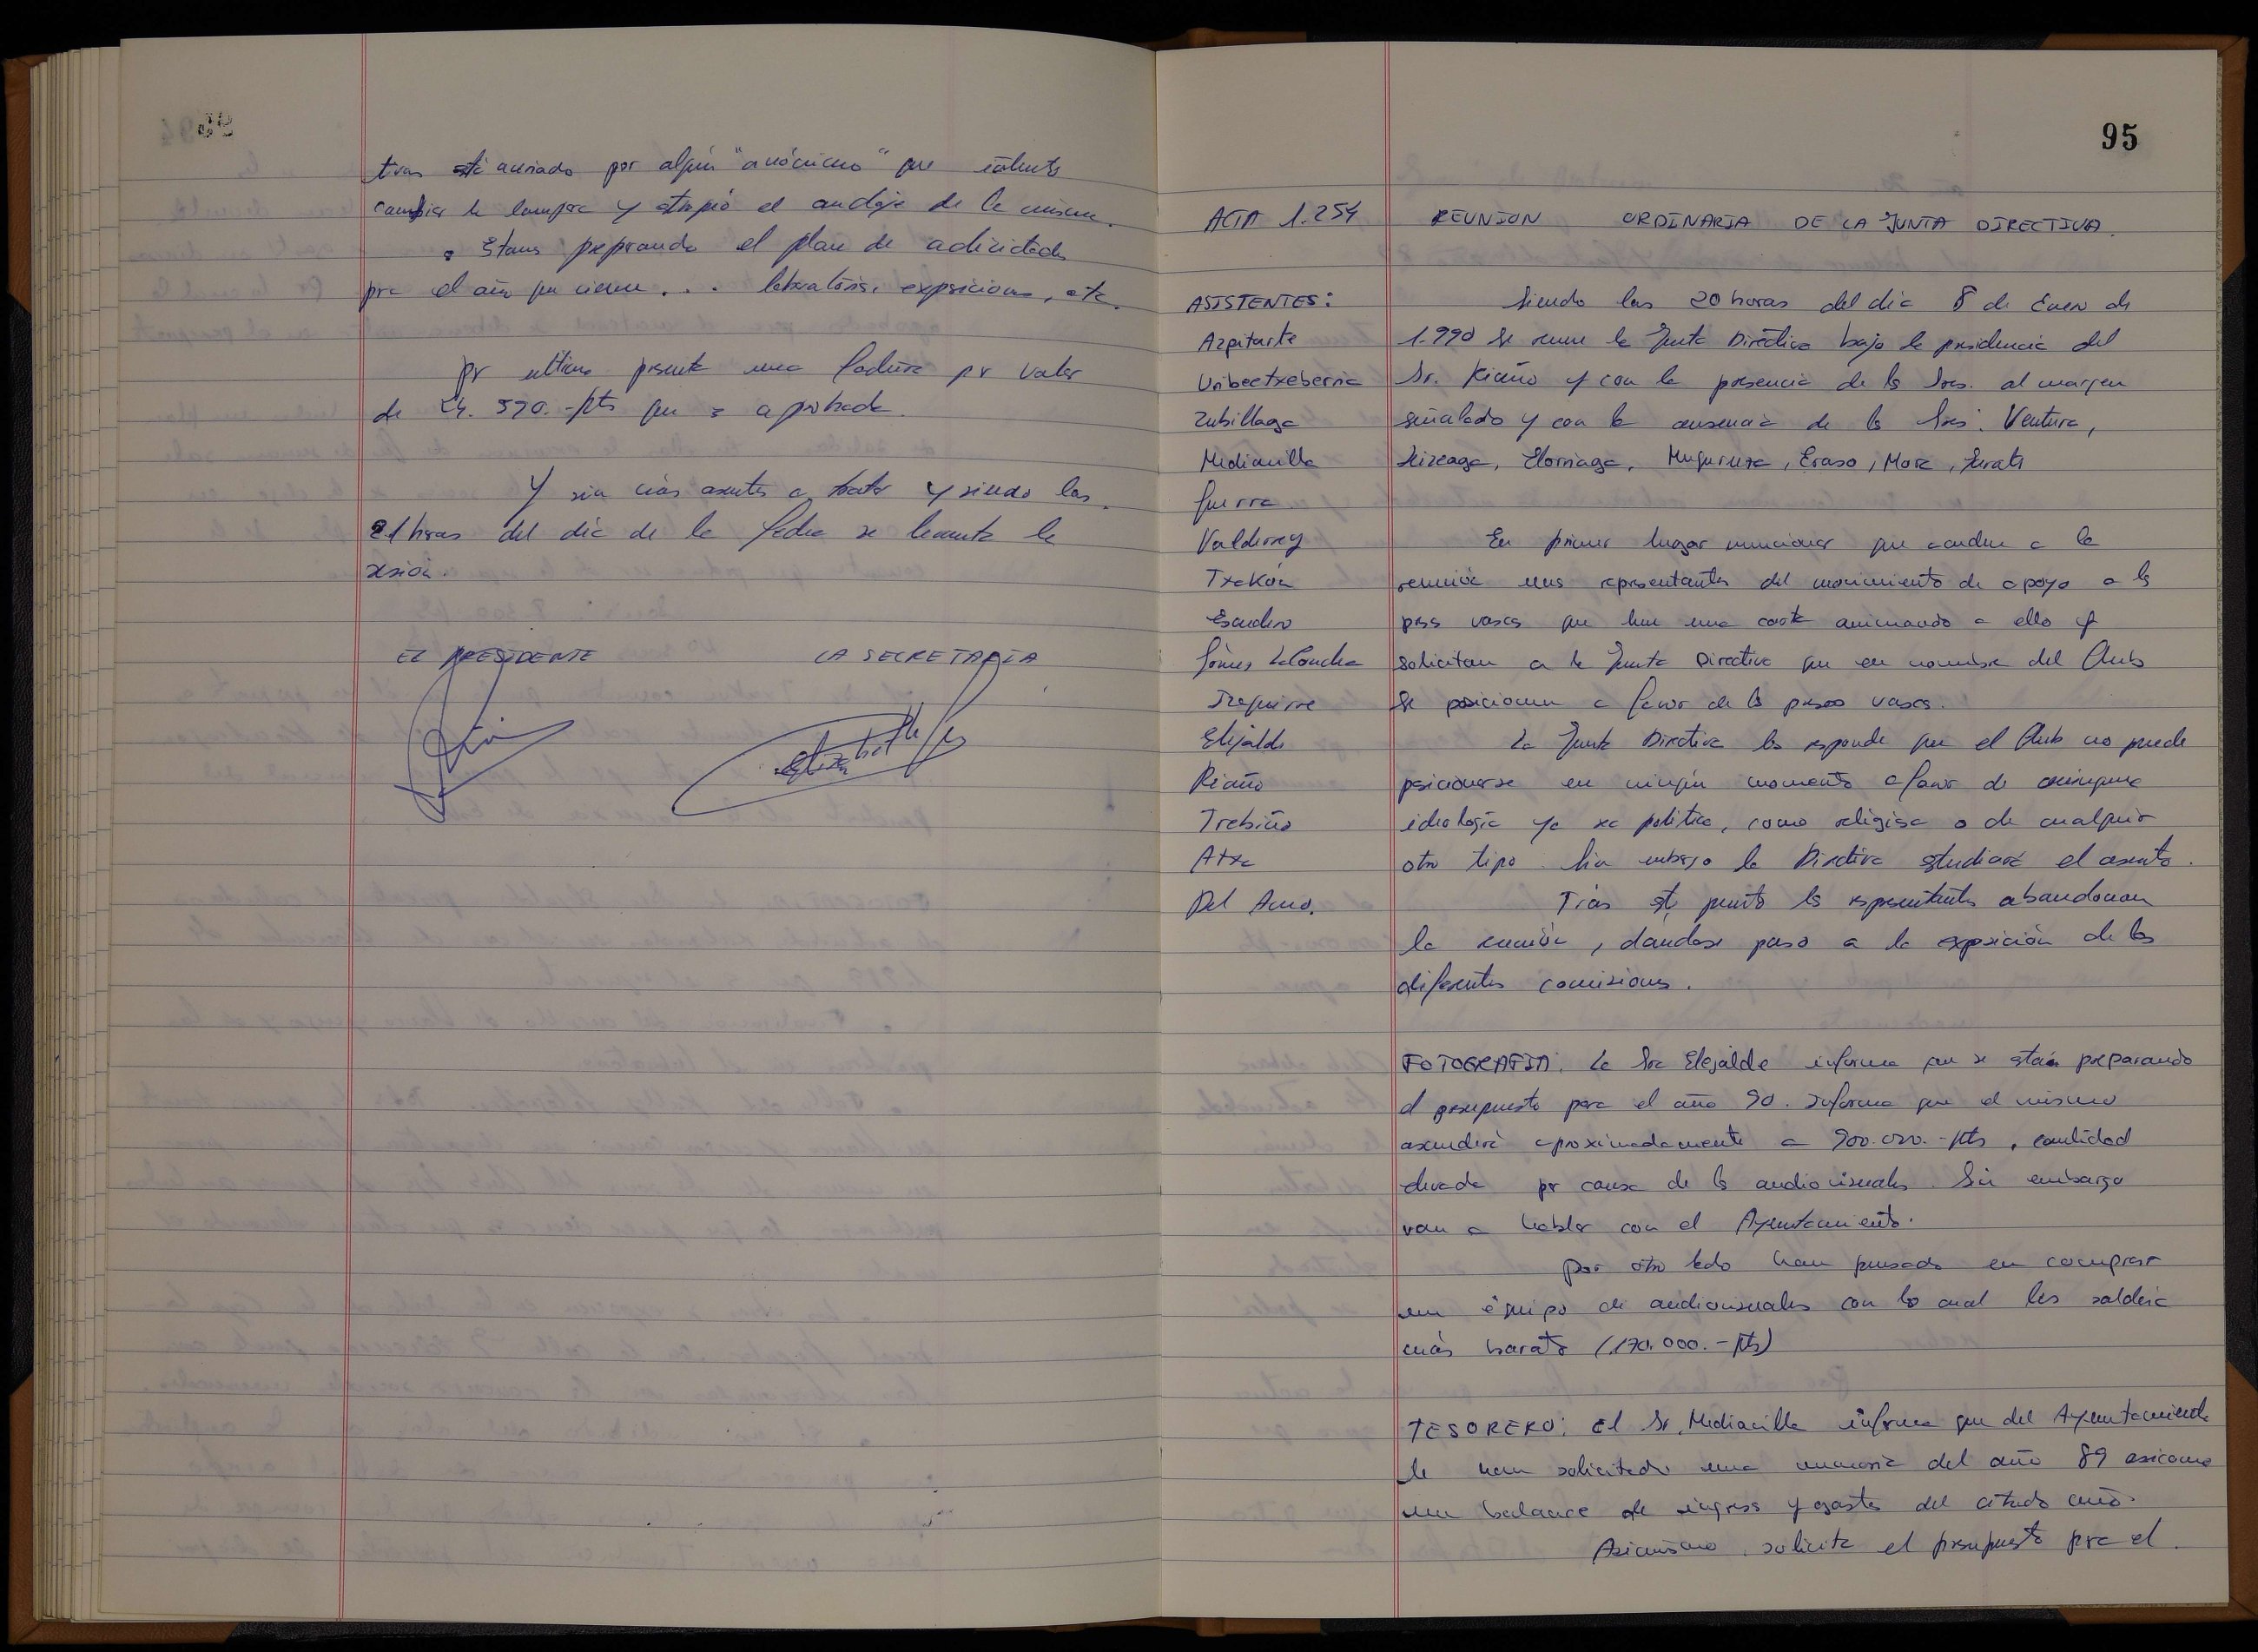 tros está averiado por algún "anónimo" que intentó
cambiar la lampara y stropió el anclaje de la misma.
• Stans preparando el plan de actividades
pra el año que viene... laboratorios, exposicions, etc.
pr ultimo presenta una factura pr valor
de 24.570.-pts que s aprobada.
Y sin más asuntos a tratar y siendo las
21 horas del día de la fecha se levanta la
sesión.
EL PRESIDENTE LA SECRETARIA
95
ACTA 1.254 REUNION ORDINARIA DE LA JUNTA DIRECTIVA.
ASISTENTES:
Azpitarte
Uribeetxeberria
Zubillaga
Mediavilla
Guerra
Valderrey
Txakón
Escudero
Gómez LaConcha
Izaguirre
Elejalde
Riaño
Trebiño
Atxa
Del Amo.
Siendo las 20 horas del día 8 de Enero de
1.990 se reune la Junta Directiva bajo la presidencia del
Sr. Riaño y con la presencia de ls Sres. al margen
señalado y con la ausencia de ls Sres: Ventura,
Leizeaga, Elorriaga, Muguruza, Eraso, Mora, Zarate
En primer lugar mencionar que acuden a la
reunión uns representantes del movimiento de apoyo a ls
press vascs que leen una carta animando a ello y
solicitan a la Junta Directiva que en nombre del Club
se posicionen a favor de ls presos vascs.
La Junta Directiva ls responde que el Club no puede
posicionarse en ningún momento a favor de ninguna
ideología ya sea politica, como religisa o de cualquir
otro tipo. Sin embargo la Directiva studiará el asunto.
Tras ste punto ls representantes abandonan
la reunión, dandose paso a la exposición de las
diferentes comisions.
FOTOGRAFIA: La Sra Elejalde informa que se stán preparando
el presupuesto para el año 90. Informa que el mismo
ascenderá aproximadamente a 900.000.-pts, cantidad
elevada pr causa de ls audiovisuales. Sin embargo
van a hablar con el Ayuntamiento.
Por otro lado han pensado en comprar
un équipo de audiovisuales con lo cual les saldría
más barato (170.000.-pts)
TESORERO: El Sr. Mediavilla informa que del Ayuntamiento
le han solicitado una memoria del año 89 asicomo
un balance de ingress y gastos del citado año.
Asimismo solicita el presupuesto pra el